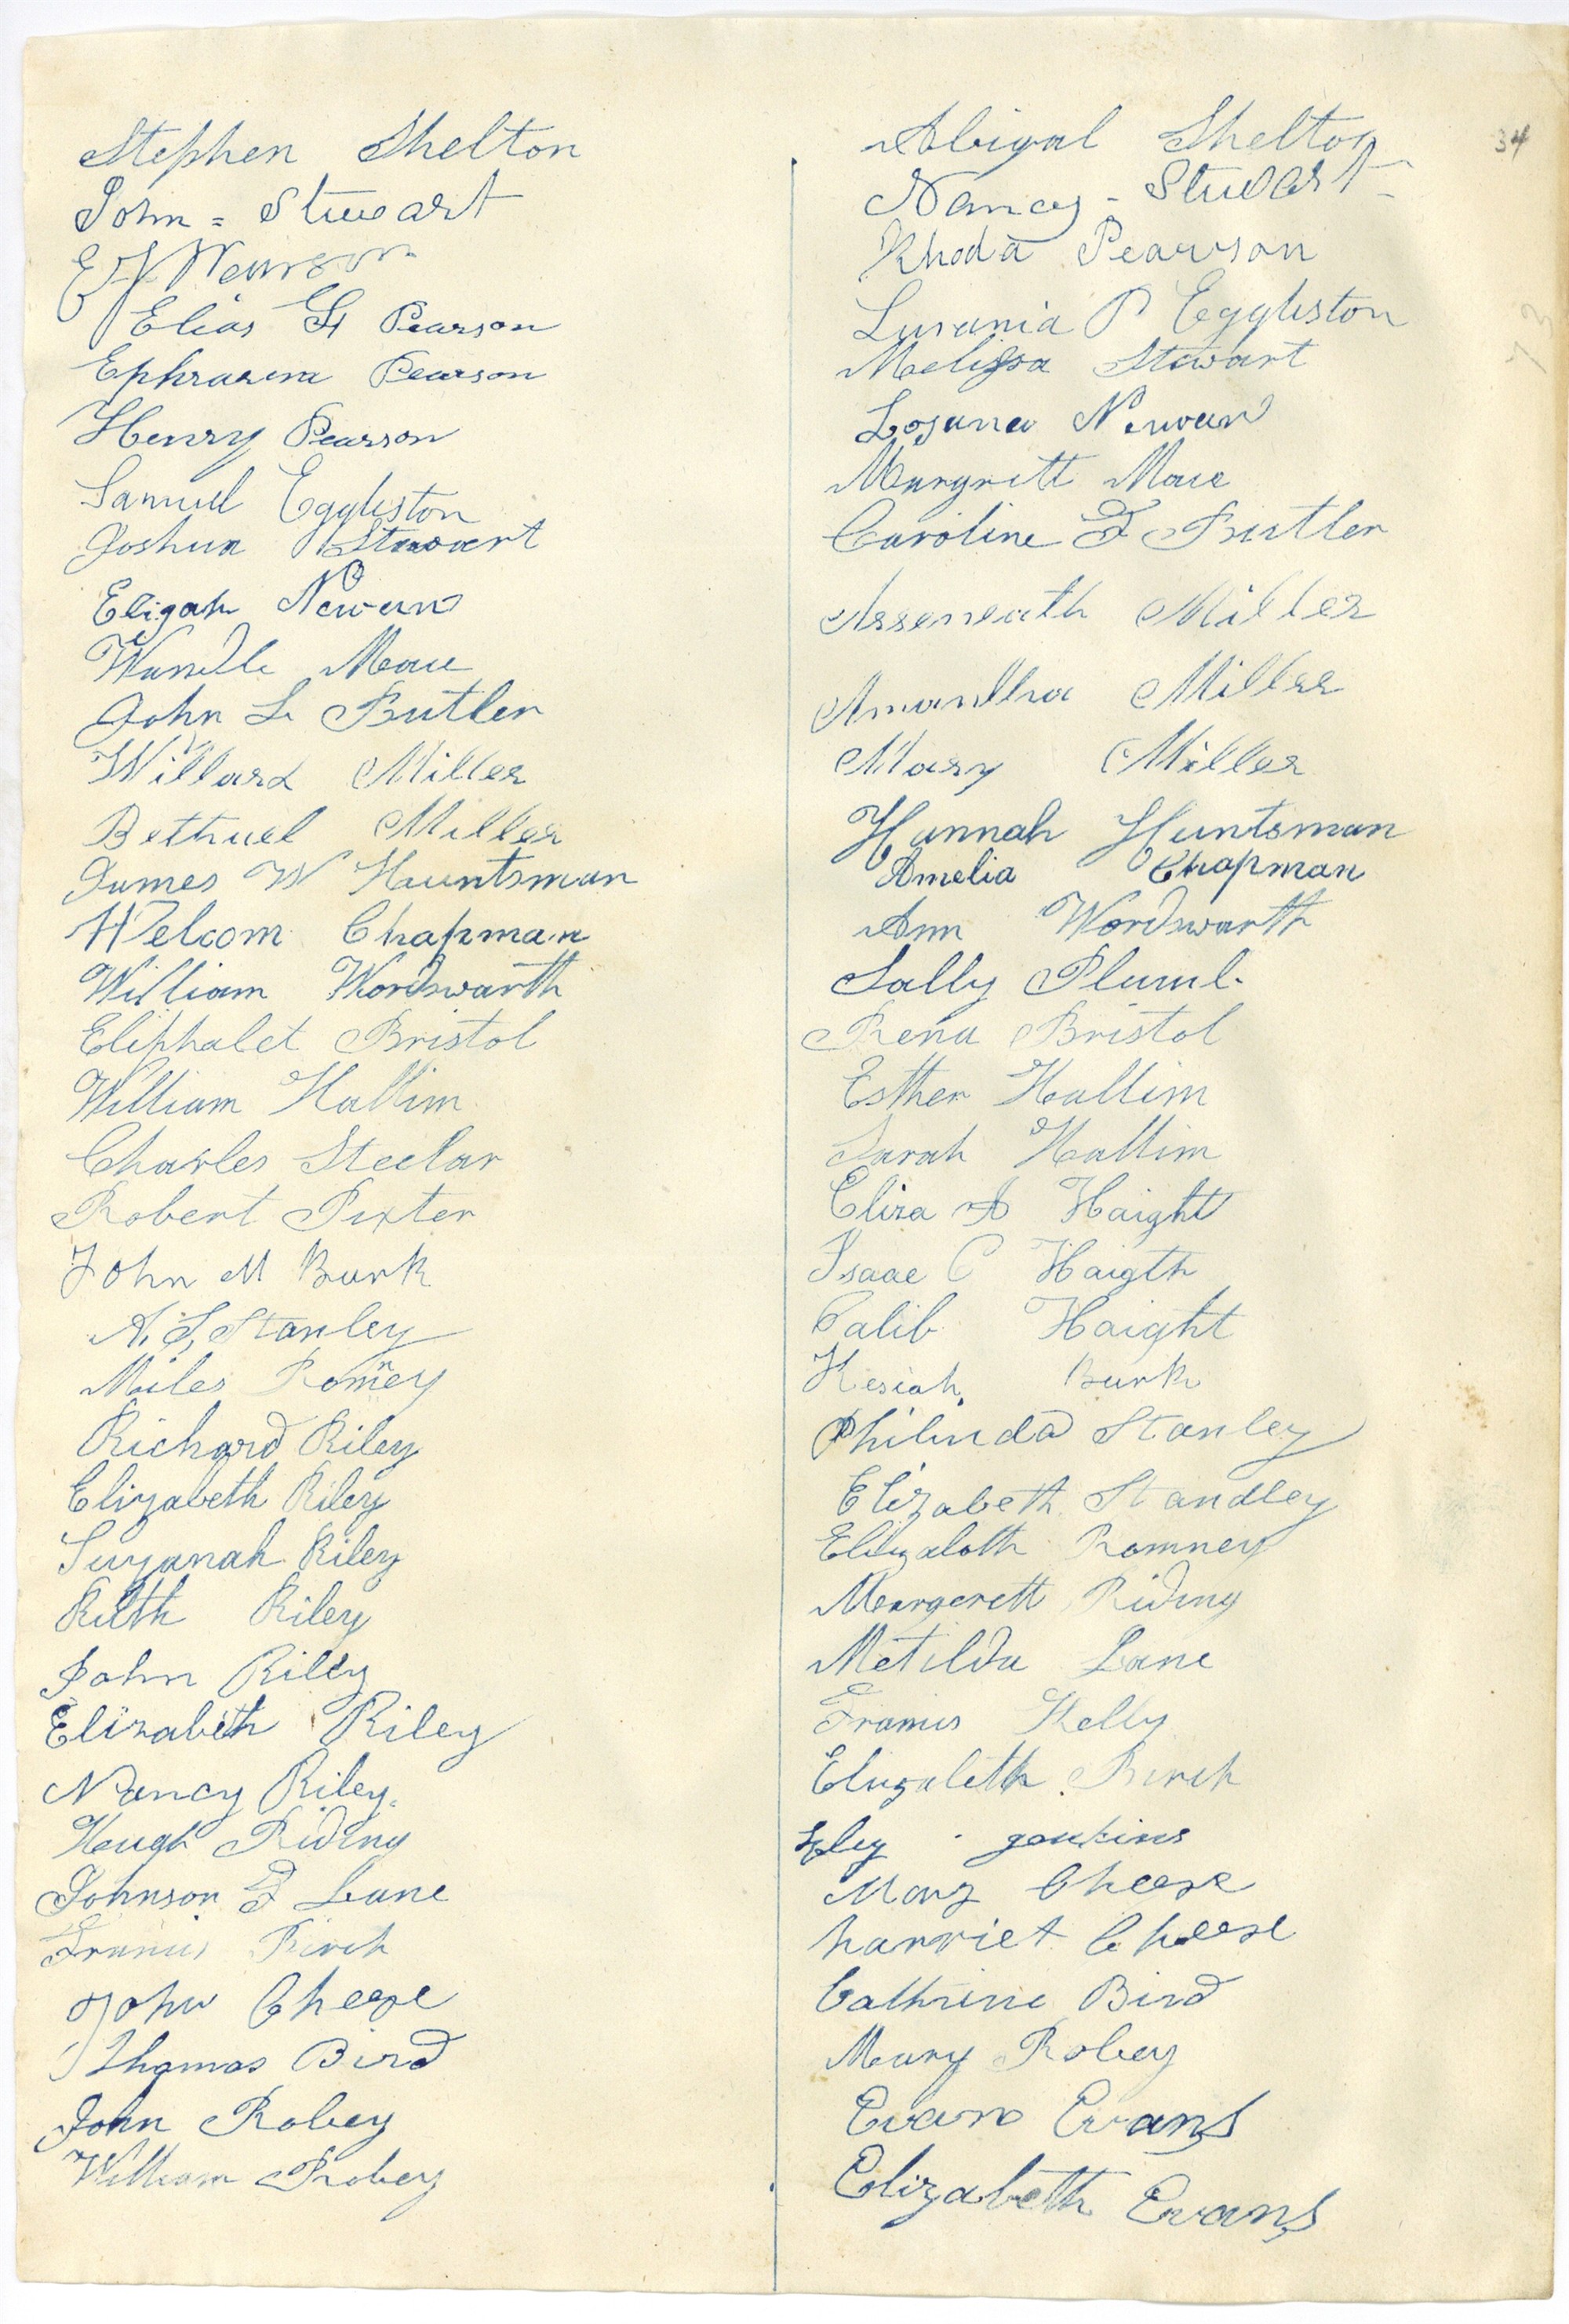 34
Stephen Shelton
John = Stuwart
E J Pearson
Elias G Pearson
Ephraim Pearson
Henry Pearson
Samuel Eggleston
Joshua Stewart
Eligah Newan
Wandle Mace
John L Butler
Willard Miller
Bethuel Miller
James W Hauntsman
Welcom Chapman
William Wordswarth
Eliphalet Bristol
William Hallim
Charles Steelar
Robert Pixter
John M Burk
A. S, Stanley
Miles Romney
Richard Riley
Elizabeth Riley
Suzanah Riley
Ruth Riley
John Riley
Elizabeth Riley
Nancy Riley
Heugh Riding
Johnson F Lane
Francis Birch
John Cheese
Thomas Bird
John Robey
William Robey
Abigal Shelton
Nancy - Stuwart -
Rhoda Pearson
Lurania P Eggleston
Melissa Stewart
Newan
Margrett Mace
Caroline F Butler
Asseneath Miller
Amandha Miller
Mary Miller
Hannah Huntsman
Amelia Chapman
Ann Wordswarth
Sally Plumb
Rena Bristol
Esther Hallim
Sarah Hallim
Eliza A Haight
Isaac C Haigth
Calib Haight
Kesiah Burk
Philinda Stanley
Elizabeth Standley
Elizabeth Romney
Margerett Riding
Metilda Lane
Francis Kelly
Elizabeth Birch
jenkins
Mary Cheese
harriet Cheese
Cathrine Bird
Mary Robey
Evan Evans
Elizabeth Evans